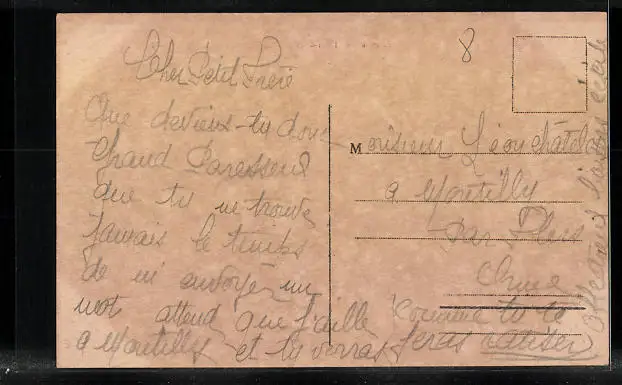 8
Cher Petit Frère
Que deviens-tu donc
Grand Paresseux
que tu ne trouve
jamais le temps
de m envoyér un
mot attend que j'aille
a Montilly et tu verras
Monsieur Léon
a Montilly
Par Flers
Orne
comme tu te
feras